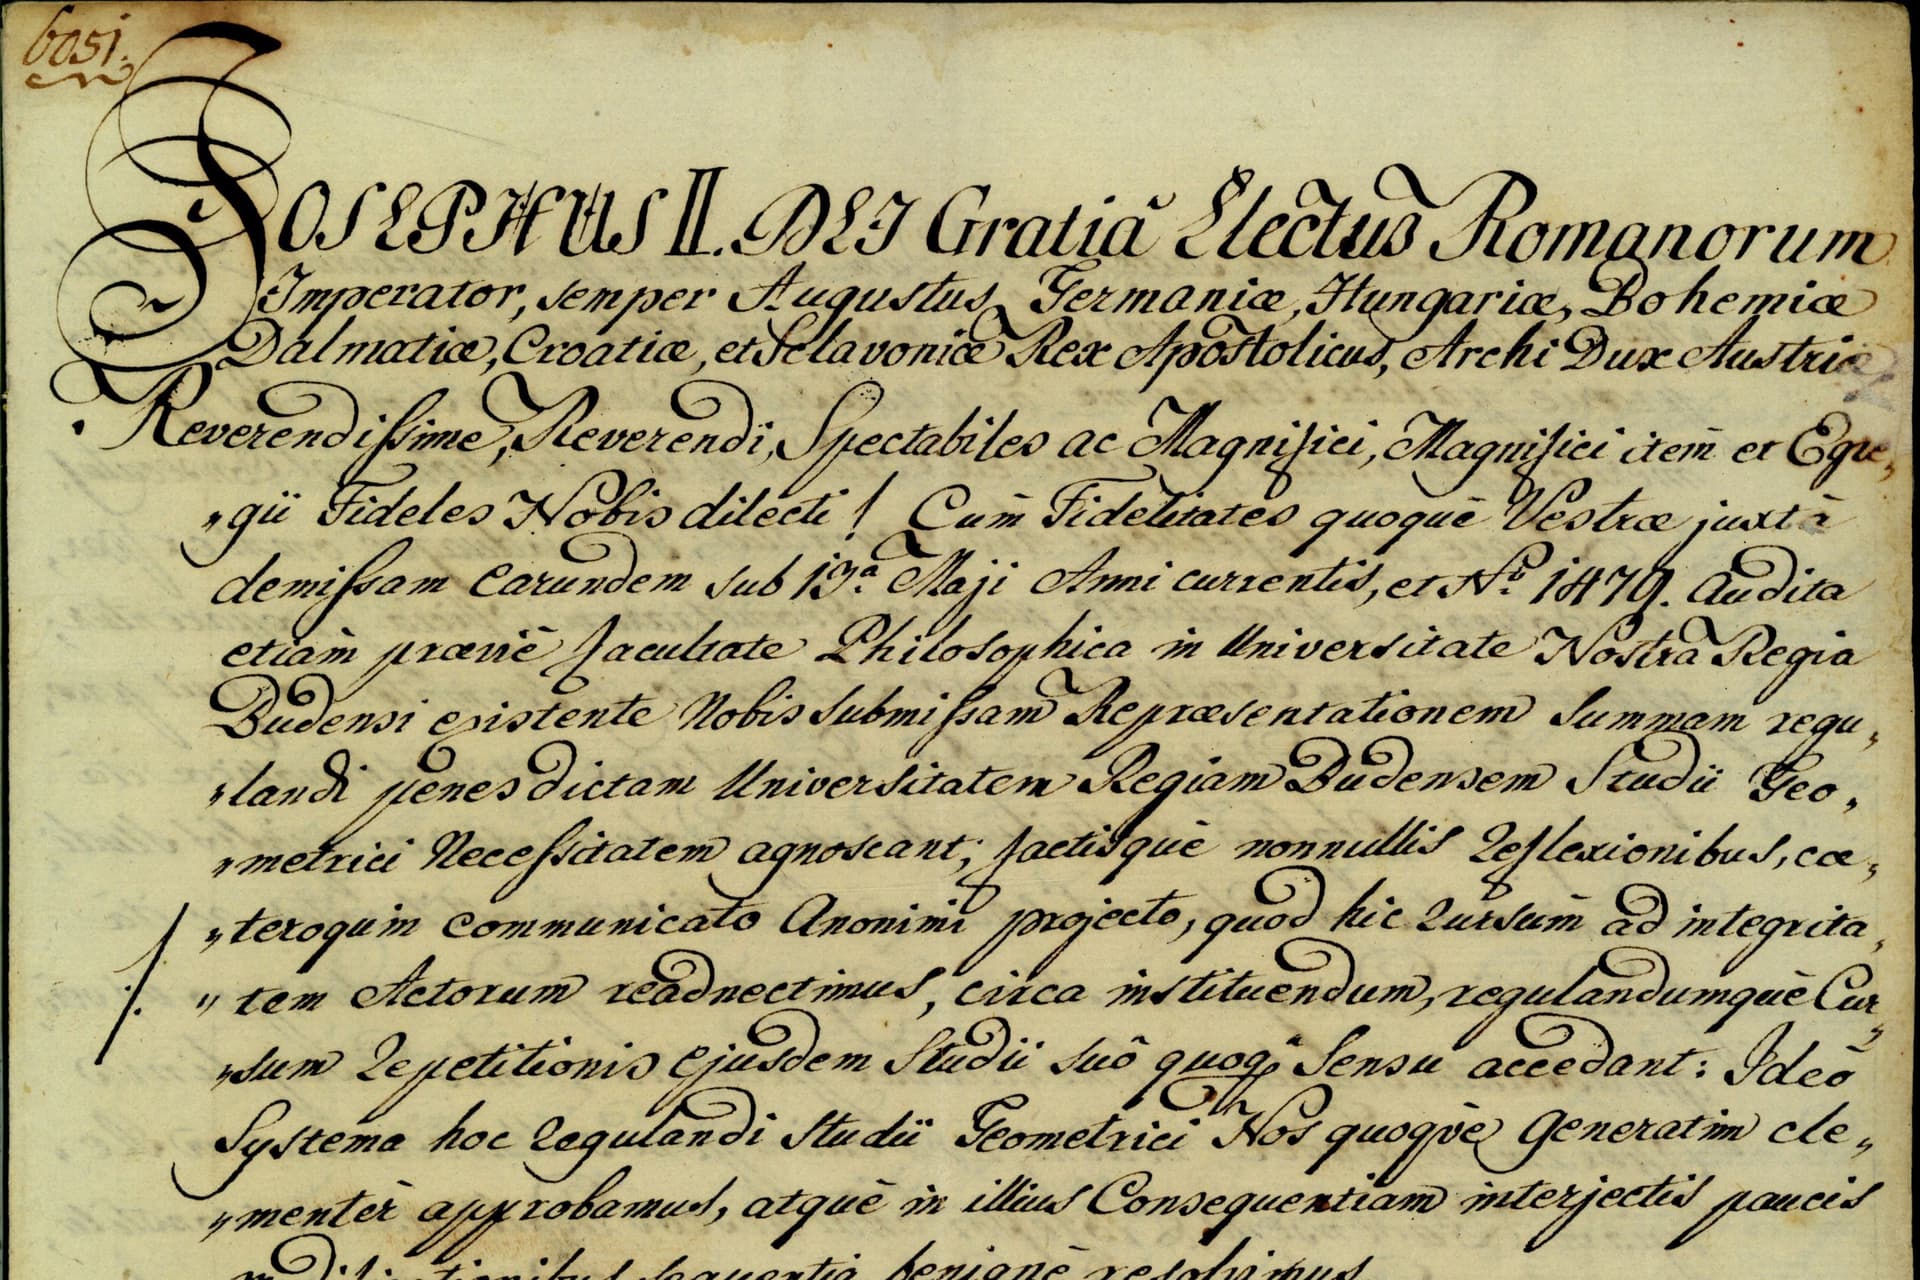 6051.
JOSEPHUS II. DEI Gratiâ Electus Romanorum
Imperator, semper Augustus, Germaniæ, Hungariæ, Bohemiæ
Dalmatiæ, Croatiæ, et Sclavoniæ Rex Apostolicus, Archi Dux Austriæ
Reverendissime, Reverendi, Spectabiles ac Magnifici, Magnifici item et Egre„
„gii Fideles Nobis dilecti! Cum Fidelitates quoquè Vestræ juxtà
demissam earundem sub 13ª Maji Anni currentis, et Nº 1479. audita
etiàm præviè facultate Philosophica in Universitate Nostra Regia
Budensi existente Nobis submissam Repræsentationem summam regu„
„landi penes dictam Universitatem Regiam Budensem Studii Geo„
„metrici Necessitatem agnoscant; factisquè nonnullis reflexionibus, cæ„
„teroquin communicato Anonimi projecto, quod hic rursum ad integrita„
„tem Actorum readnectimus, circa instituendum, regulandumquè Cur„
„sum repetitionis ejusdem Studii suô quoq̀ Sensu accedant: Ideò
Systema hoc regulandi Studii Geometrici Nos quoquè generatim cle„
„mentèr approbamus, atquè in illius Consequentiam interjectis paucis
modificationibus sequentia benignè resolvimus